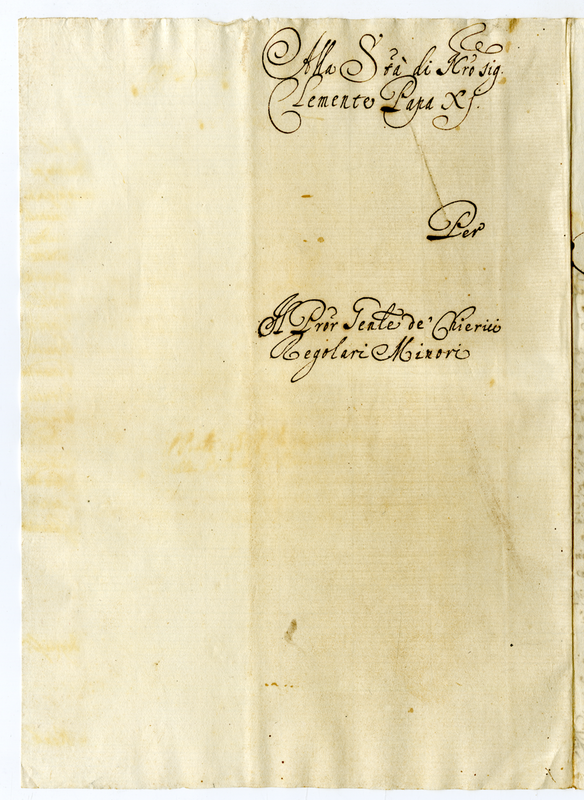 Alla Stà di Nro Sigre
Clemente Papa XI.
Per
Il Pror Genle de' Chierici
Regolari Minori